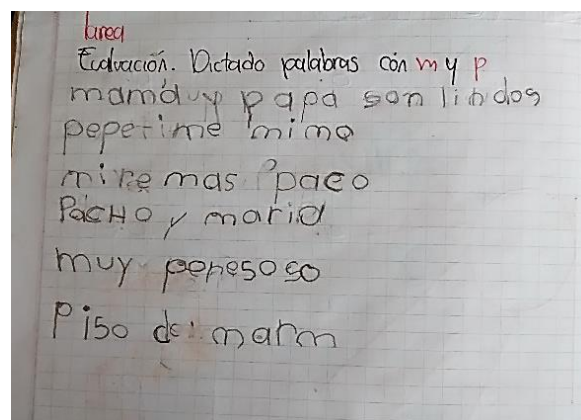 tarea
Evaluación. Dictado palabras con m y p
mamá y papa son lindos
peperime mima
mire mas paco
PacHo y maria
muy peresoso
Piso de marm